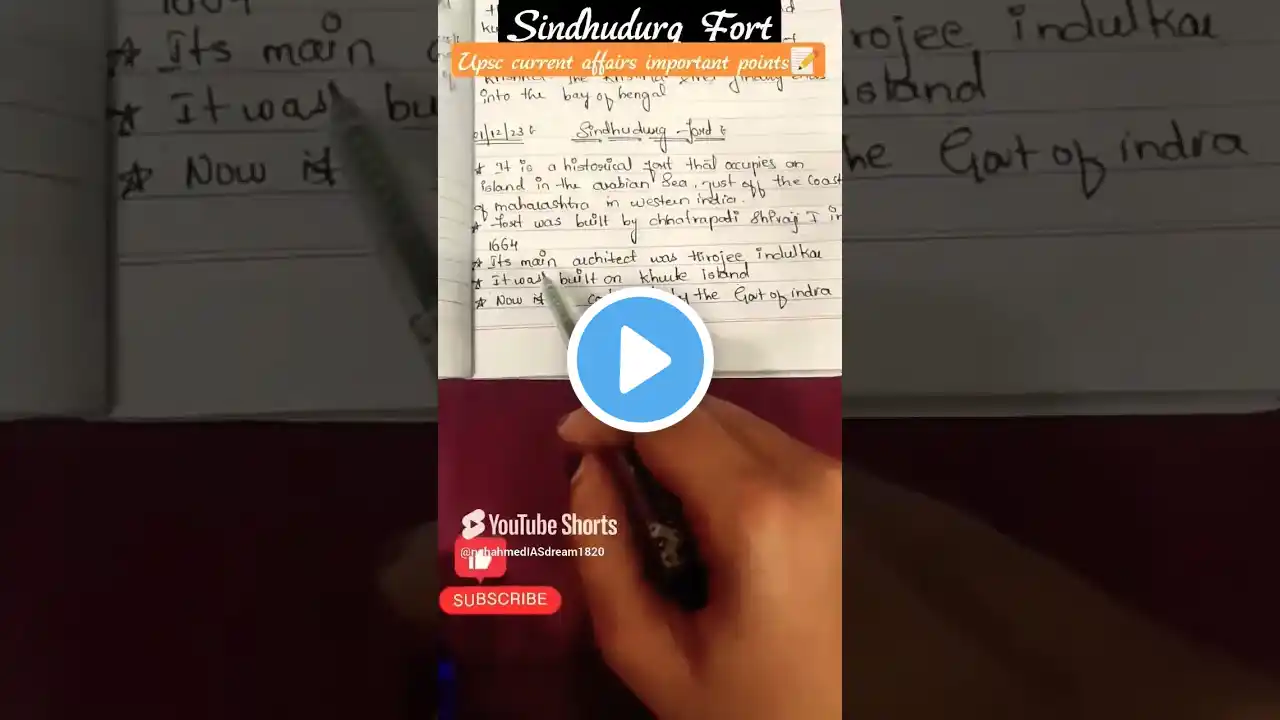 Sindhudurg Fort
Upsc current affairs important points📝
into the bay of bengal
01/12/23 Sindhudurg Fort
★ It is a historical fort that occupies an
island in the arabian Sea, just off the Coast
of maharashtra in western india.
★ Fort was built by chhatrapati Shivaji I in
1664
★ Its main architect was Hirojee indulkar
★ It was built on Khurte Island
★ Now it by the Govt of indra
★ Its main
★ It was bu
★ Now it
rojee indulkar
island
he Govt of indra
YouTube Shorts
@nahahmedIASdream1820
SUBSCRIBE